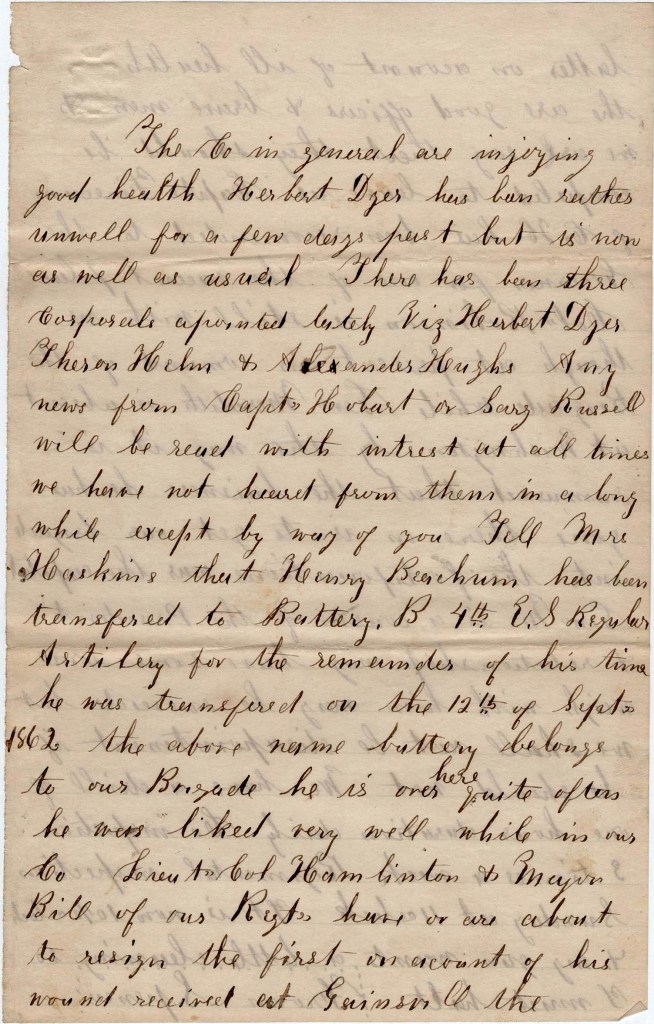 The Co in general are injoying
good health Herbert Dyer has ban rather
unwell for a few days past but is now
as well as usual. There has been three
Corporals apointed lately Viz Herbert Dyer
Theron Helm & Alexander Hughs Any
news from Capt Hobart or Sarg Russell
will be read with intrest at all times
we have not heard from them in a long
while except by way of you Tell Mrs
Haskins that Henry Beachum has been
transfered to Battery. B 4th U.S Regular
Artilery for the remainder of his time
he was transfered on the 12th of Sept
1862 the above name battery belongs
to our Brigade he is over here quite often
he was liked very well while in our
Co Lieut Col Hamlinton & Mayor
Bill of our Regt have or are about
to resign the first on acount of his
wound received at Gainsvill the